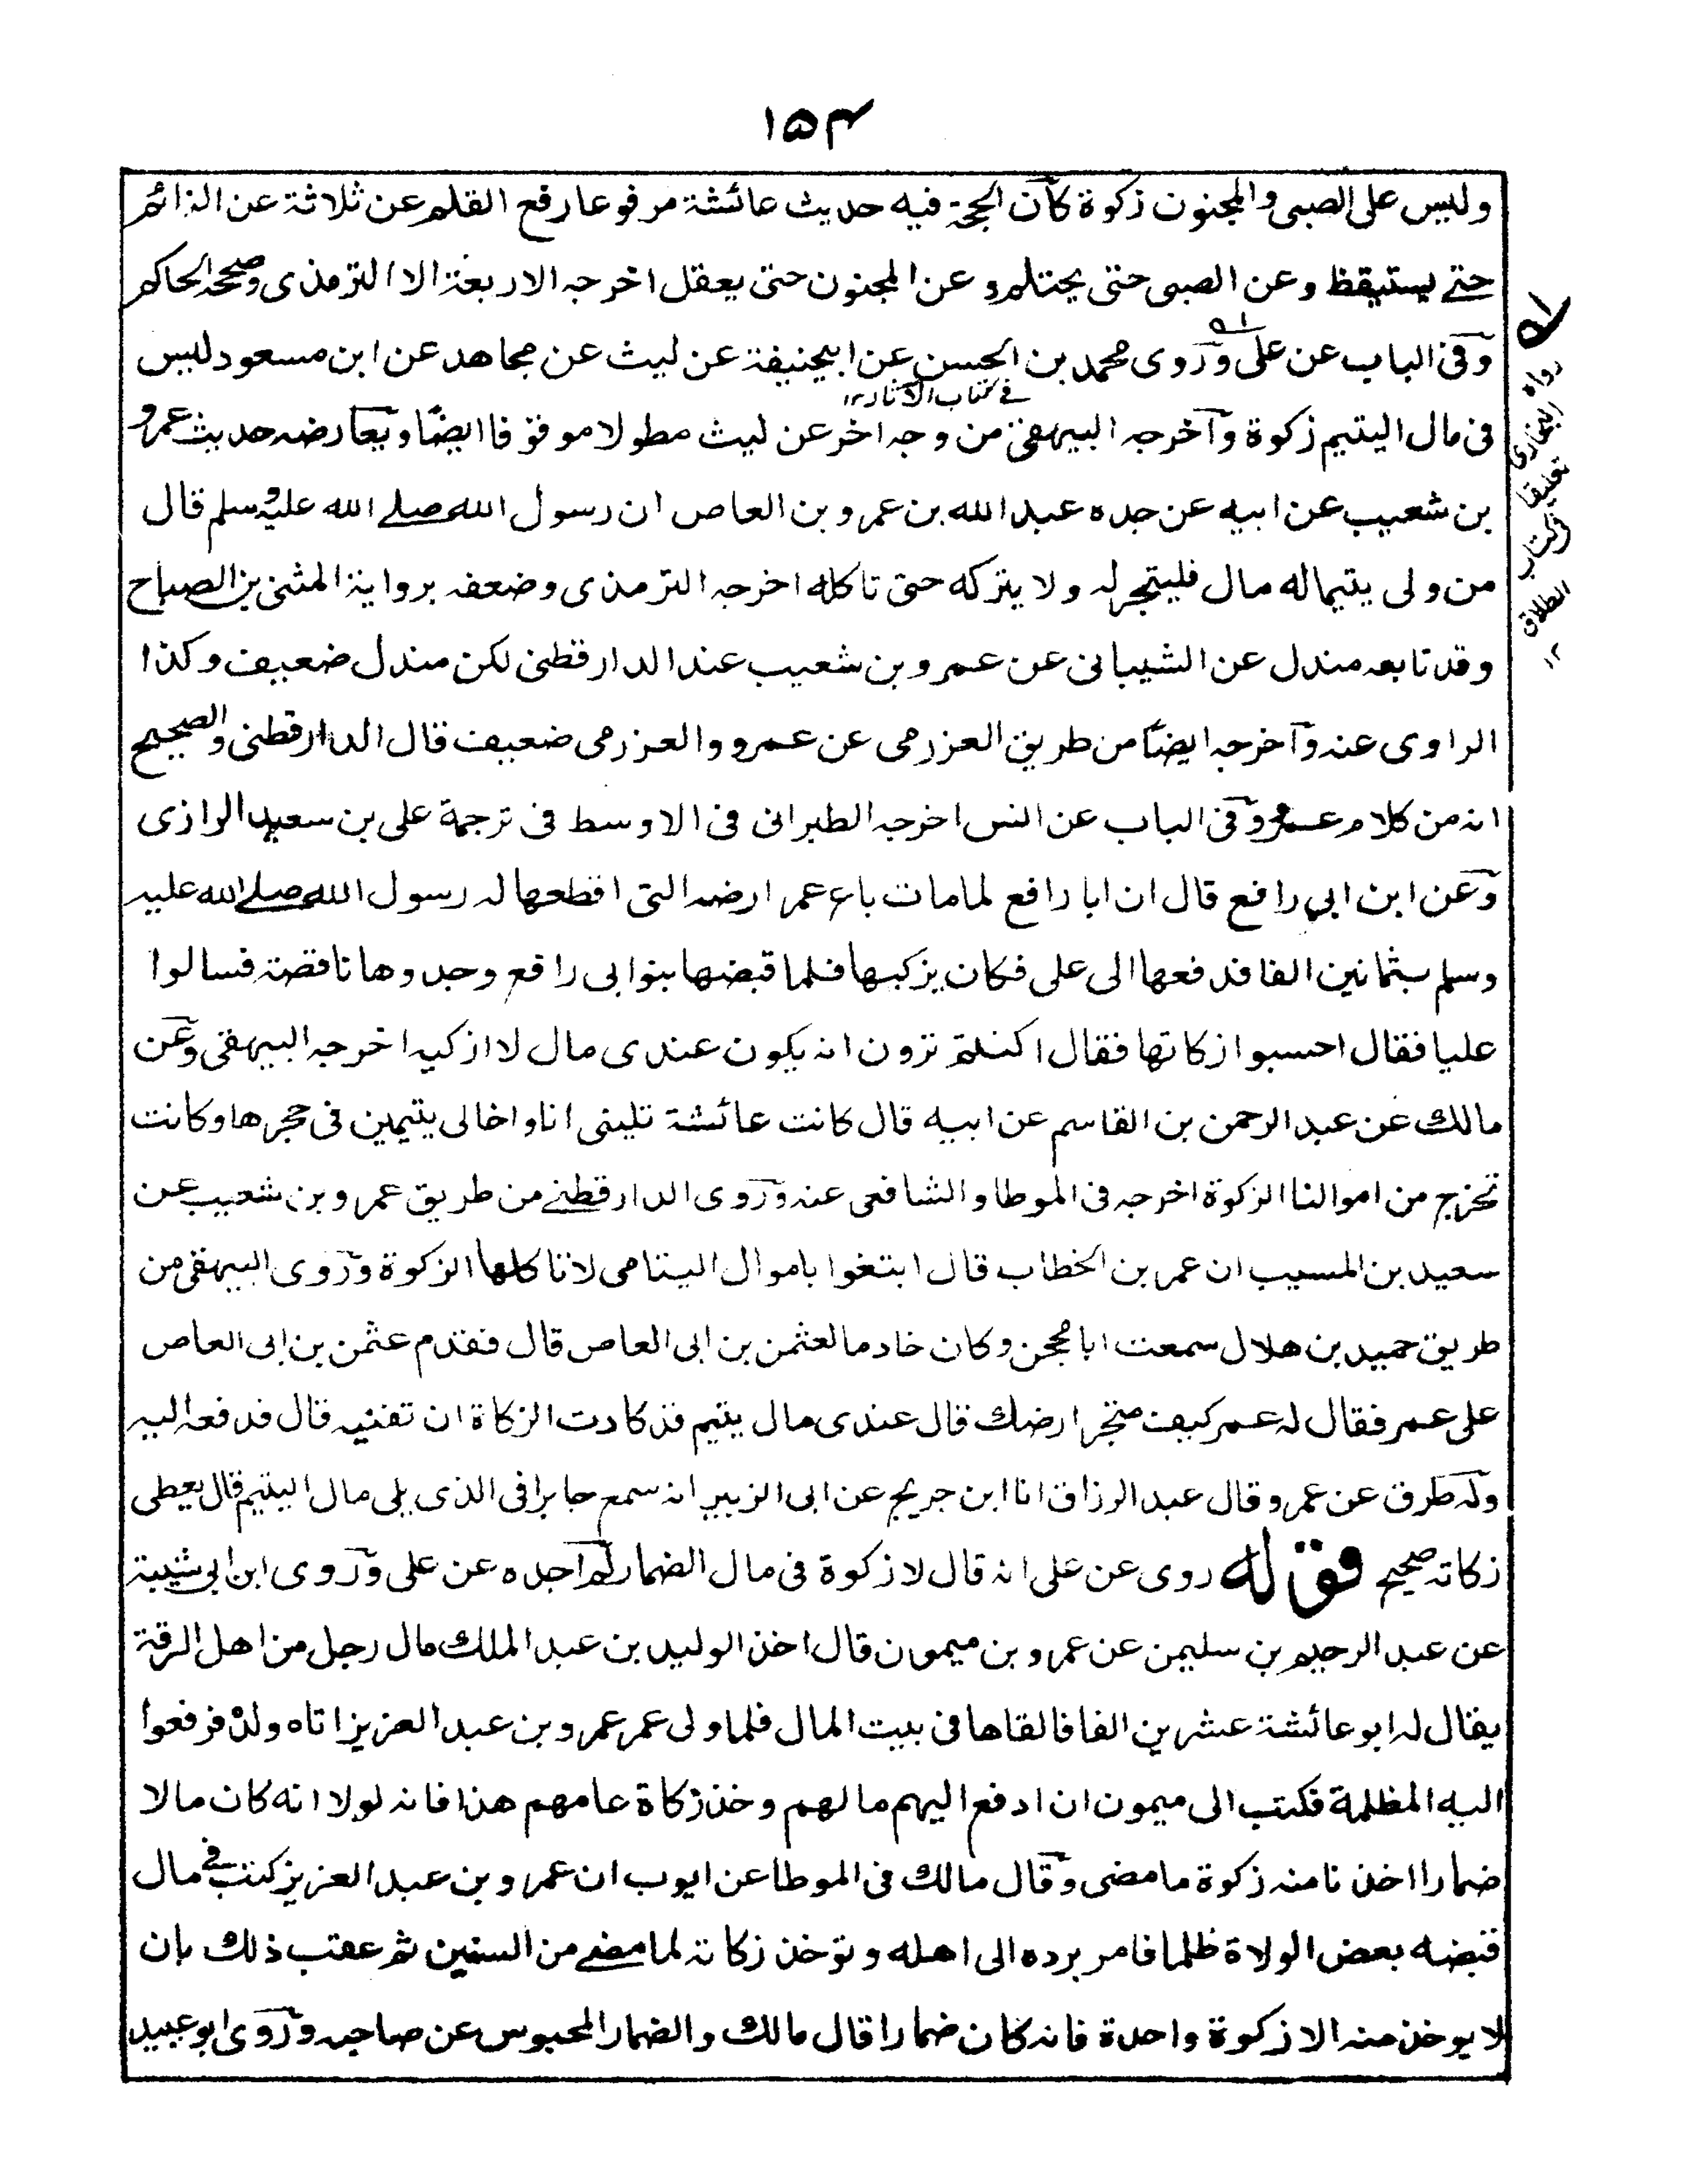 ۱۵۴
وليس على الصبى والمجنون زكوة كأن الحجة فيه حديث عائشة مرفوعا رفع القلم عن ثلاثة عن النائم
حتے يستيقظ وعن الصبى حتى يحتلم وعن المجنون حتى يعقل اخرجه الاربعة الا الترمذى وصححه الحاكم
وفى الباب عن على وروى محمد بن الحسن عن ابيحنيفة عن ليث عن مجاهد عن ابن مسعود ليس
فے كتاب الآثار ۱۲
فى مال اليتيم زكوة وآخرجه البيهقى من وجه اخر عن ليث مطولا موقوفا ايضا ويعارضه حديث عمرو
بن شعيب عن ابيه عن جده عبد الله بن عمرو بن العاص ان رسول الله صلے الله عليه وسلم قال
من ولى يتيما له مال فليتجر له ولا يتركه حتى تاكله اخرجه الترمذى وضعفه برواية المثنى بن الصباح
وقد تابعه مندل عن الشيبانى عن عمرو بن شعيب عند الدارقطنى لكن مندل ضعيف وكذا
الراوى عنه وآخرجه ايضا من طريق العزرمى عن عمرو والعزرمى ضعيف قال الدارقطنى والصحيح
انه من كلام عمر وفى الباب عن انس اخرجه الطبرانى فى الاوسط فى ترجمة على بن سعيد الرازى
وعن ابن ابى رافع قال ان ابا رافع لما مات باع عمر ارضه التى اقطعها له رسول الله صلے الله عليه
وسلم بثمانين الفا فدفعها الى على فكان يزكيها فلما قبضها بنوا بى رافع وجدوها ناقصة فسالوا
عليا فقال احسبوا زكاتها فقال اكنتم ترون انه يكون عندى مال لا ازكيه اخرجه البيهقى وعن
مالك عن عبد الرحمن بن القاسم عن ابيه قال كانت عائشة تلينى انا واخا لى يتيمين فى حجرها وكانت
تخرج من اموالنا الزكوة اخرجه فى الموطا والشافعى عنه وروى الدارقطنے من طريق عمرو بن شعيب عن
سعيد بن المسيب ان عمر بن الخطاب قال ابتغوا باموال اليتامى لا تاكلها الزكوة وروى البيهقى من
طريق حميد بن هلال سمعت ابا محجن وكان خادما لعثمن بن ابى العاص قال فقدم عثمن بن ابى العاص
على عمر فقال له عمر كيف متجر ارضك قال عندى مال يتيم قد كادت الزكاة ان تفنيه قال فدفعه اليه
وله طرق عن عمر وقال عبد الرزاق انا ابن جريج عن ابى الزبير انه سمع جابرا فى الذى يلى مال اليتيم قال يعطى
زكاته صحيح قوله روى عن على انه قال لا زكوة فى مال الضمار لم اجده عن على وروى ابن ابى شيبة
عن عبد الرحيم بن سليمن عن عمرو بن ميمون قال اخذ الوليد بن عبد الملك مال رجل من اهل الرقة
يقال له ابو عائشة عشرين الفا فالقاها فى بيت المال فلما ولى عمر عمرو بن عبد العزيز اتاه ولده فرفعوا
اليه المظلمة فكتب الى ميمون ان ادفع اليهم مالهم وخذ زكاة عامهم هذا فانه لولا انه كان مالا
ضمارا اخذنا منه زكوة ما مضى وقال مالك فى الموطا عن ايوب ان عمرو بن عبد العزيز كتب فے مال
قبضه بعض الولاة ظلما فامر برده الى اهله وتوخذ زكاته لما مضے من السنين ثم عقب ذلك بان
لا يوخذ منه الا زكوة واحدة فانه كان ضمارا قال مالك والضمار المحبوس عن صاحبه وروى ابو عبيد
له
رواه
البخارى
تعليقا
فى كتاب
الطلاق
۱۲